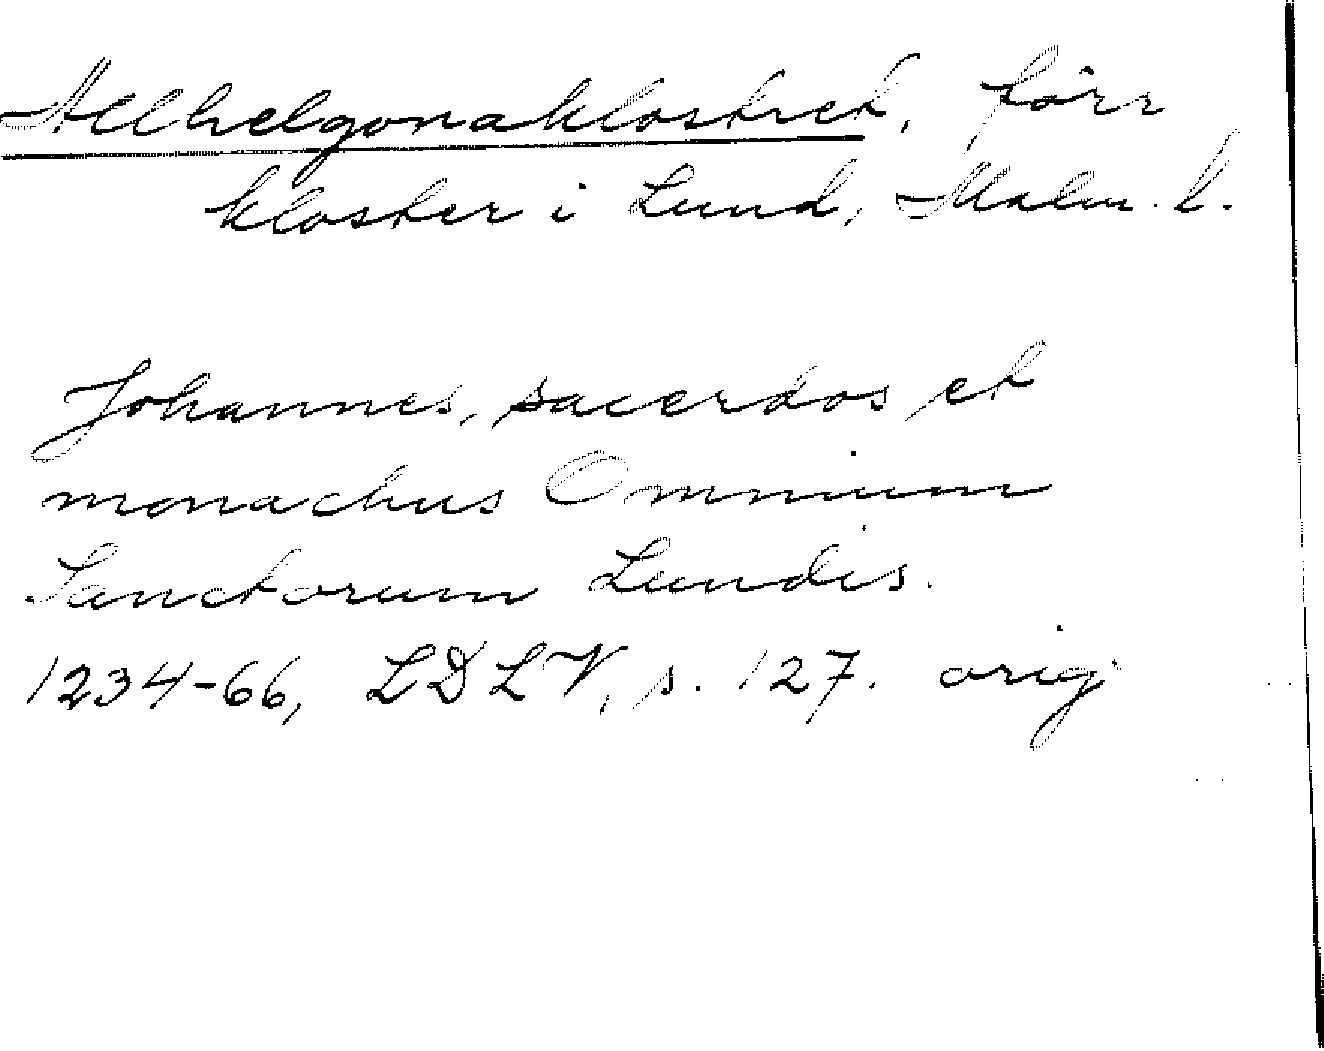 Allhelgonaklostret, förr
kloster i Lund, Malm. l.
Johannes, sacerdos et
monachus Omnium
Sanctorum Lundis.
1234-66, LDLV, s. 127. orig